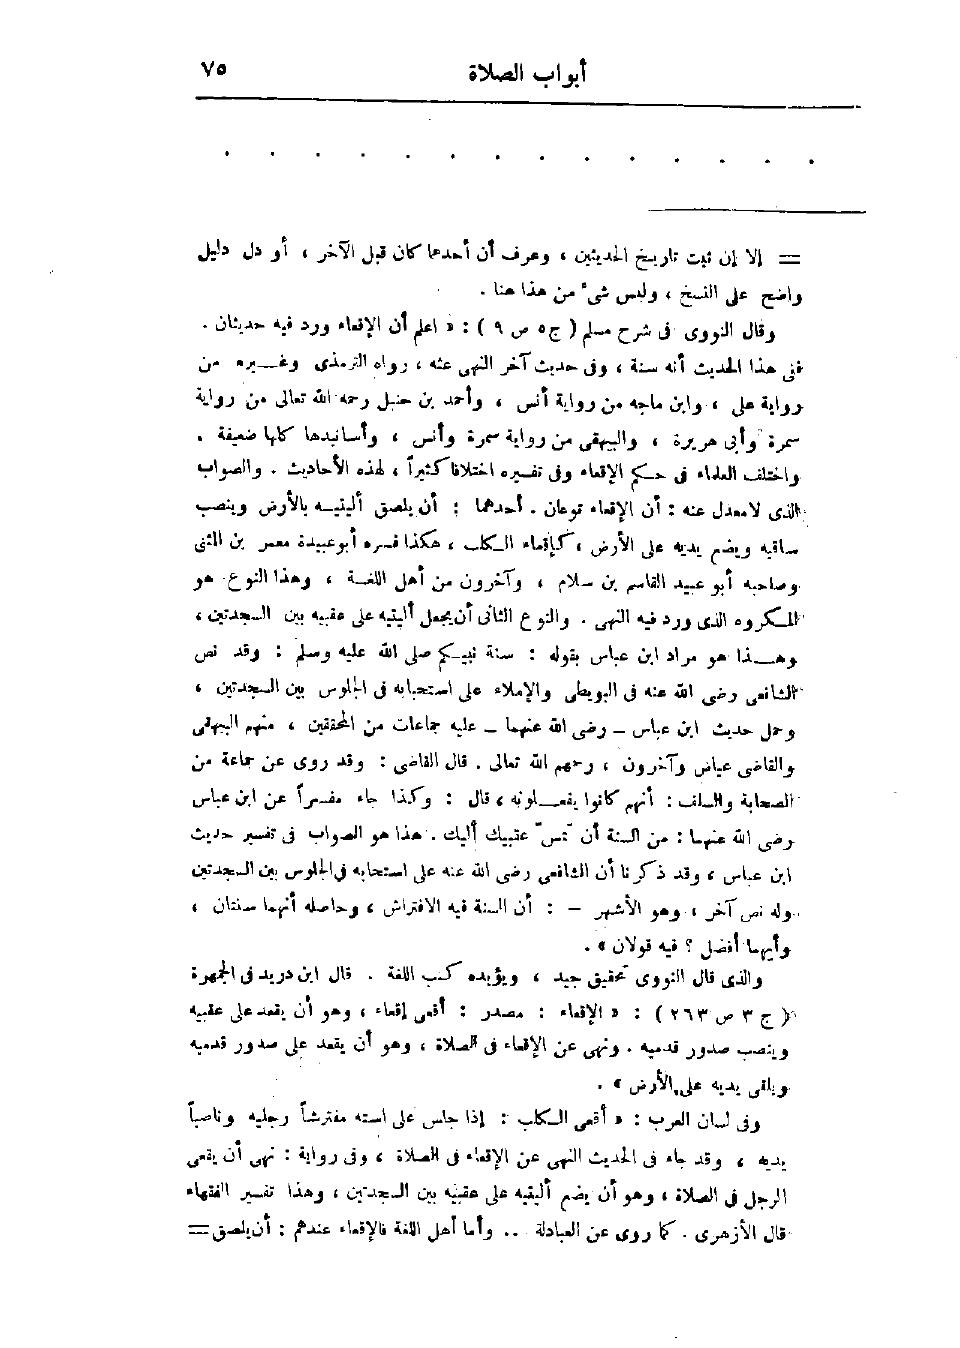 أبواب الصلاة ٧٥
. . . . . . . . . . . . . .
= إلا إن ثبت تاريخ الحديثين ، وعرف أن أحدهما كان قبل الآخر ، أو دل دليل
واضح على النسخ ، وليس شىء من هذا هنا .
وقال النووى فى شرح مسلم ( ج ٥ ص ٩ ) : « اعلم أن الإقعاء ورد فيه حديثان .
فنى هذا الحديث أنه سنة ، وفى حديث آخر النهى عنه ، رواه الترمذى وغيره من
رواية على ، وابن ماجه من رواية أنس ، وأحمد بن حنبل رحمه الله تعالى من رواية
سمرة وأبى هريرة ، والبيهقى من رواية سمرة وأنس ، وأسانيدها كلها ضعيفة .
واختلف العلماء فى حكم الإقعاء وفى تفسيره اختلافا كثيراً ، لهذه الأحاديث . والصواب
الذى لا معدل عنه : أن الإقعاء نوعان . أحدهما : أن يلصق أليتيه بالأرض وينصب
ساقيه ويضم يديه على الأرض ، كإقعاء الكلب ، هكذا فسره أبو عبيدة معمر بن المثنى
وصاحبه أبو عبيد القاسم بن سلام ، وآخرون من أهل اللغة ، وهذا النوع هو
المكروه الذى ورد فيه النهى . والنوع الثانى أن يجعل أليتيه على عقبيه بين السجدتين ،
وهذا هو مراد ابن عباس بقوله : سنة نبيكم صلى الله عليه وسلم : وقد نص
الشافعى رضى الله عنه فى البويطى والإملاء على استحبابه فى الجلوس بين السجدتين ،
وحمل حديث ابن عباس – رضى الله عنهما – عليه جماعات من المحققين ، منهم البيهقى
والقاضى عياض وآخرون ، رحمهم الله تعالى . قال القاضى : وقد روى عن جماعة من
الصحابة والسلف : أنهم كانوا يفعلونه ، قال : وكذا جاء مفسراً عن ابن عباس
رضى الله عنهما : من السنة أن تمس عقبيك أليك . هذا هو الصواب فى تفسير حديث
ابن عباس ، وقد ذكرنا أن الشافعى رضى الله عنه على استحبابه فى الجلوس بين السجدتين
وله نص آخر ، وهو الأشهر – : أن السنة فيه الافتراش ، وحاصله أنهما سنتان ،
وأيهما أفضل ؟ فيه قولان » .
والذى قال النووى تحقيق جيد ، ويؤيده كتب اللغة . قال ابن دريد فى الجمهرة
( ج ٣ ص ٢٦٣ ) : « الإقعاء : مصدر : أقعى إقعاء ، وهو أن يقعد على عقبيه
وينصب صدور قدميه . ونهى عن الإقعاء فى الصلاة ، وهو أن يقعد على صدور قدميه
ويلقى يديه على الأرض » .
وفى لسان العرب : « أقعى الكلب : إذا جلس على استه مفترشاً رجليه وناصباً
يديه ، وقد جاء فى الحديث النهى عن الإقعاء فى الصلاة ، وفى رواية : نهى أن يقعى
الرجل فى الصلاة ، وهو أن يضم أليتيه على عقبيه بين السجدتين ، وهذا تفسير الفقهاء
قال الأزهرى . كما روى عن العبادلة .. وأما أهل اللغة فالإقعاء عندهم : أن يلصق =